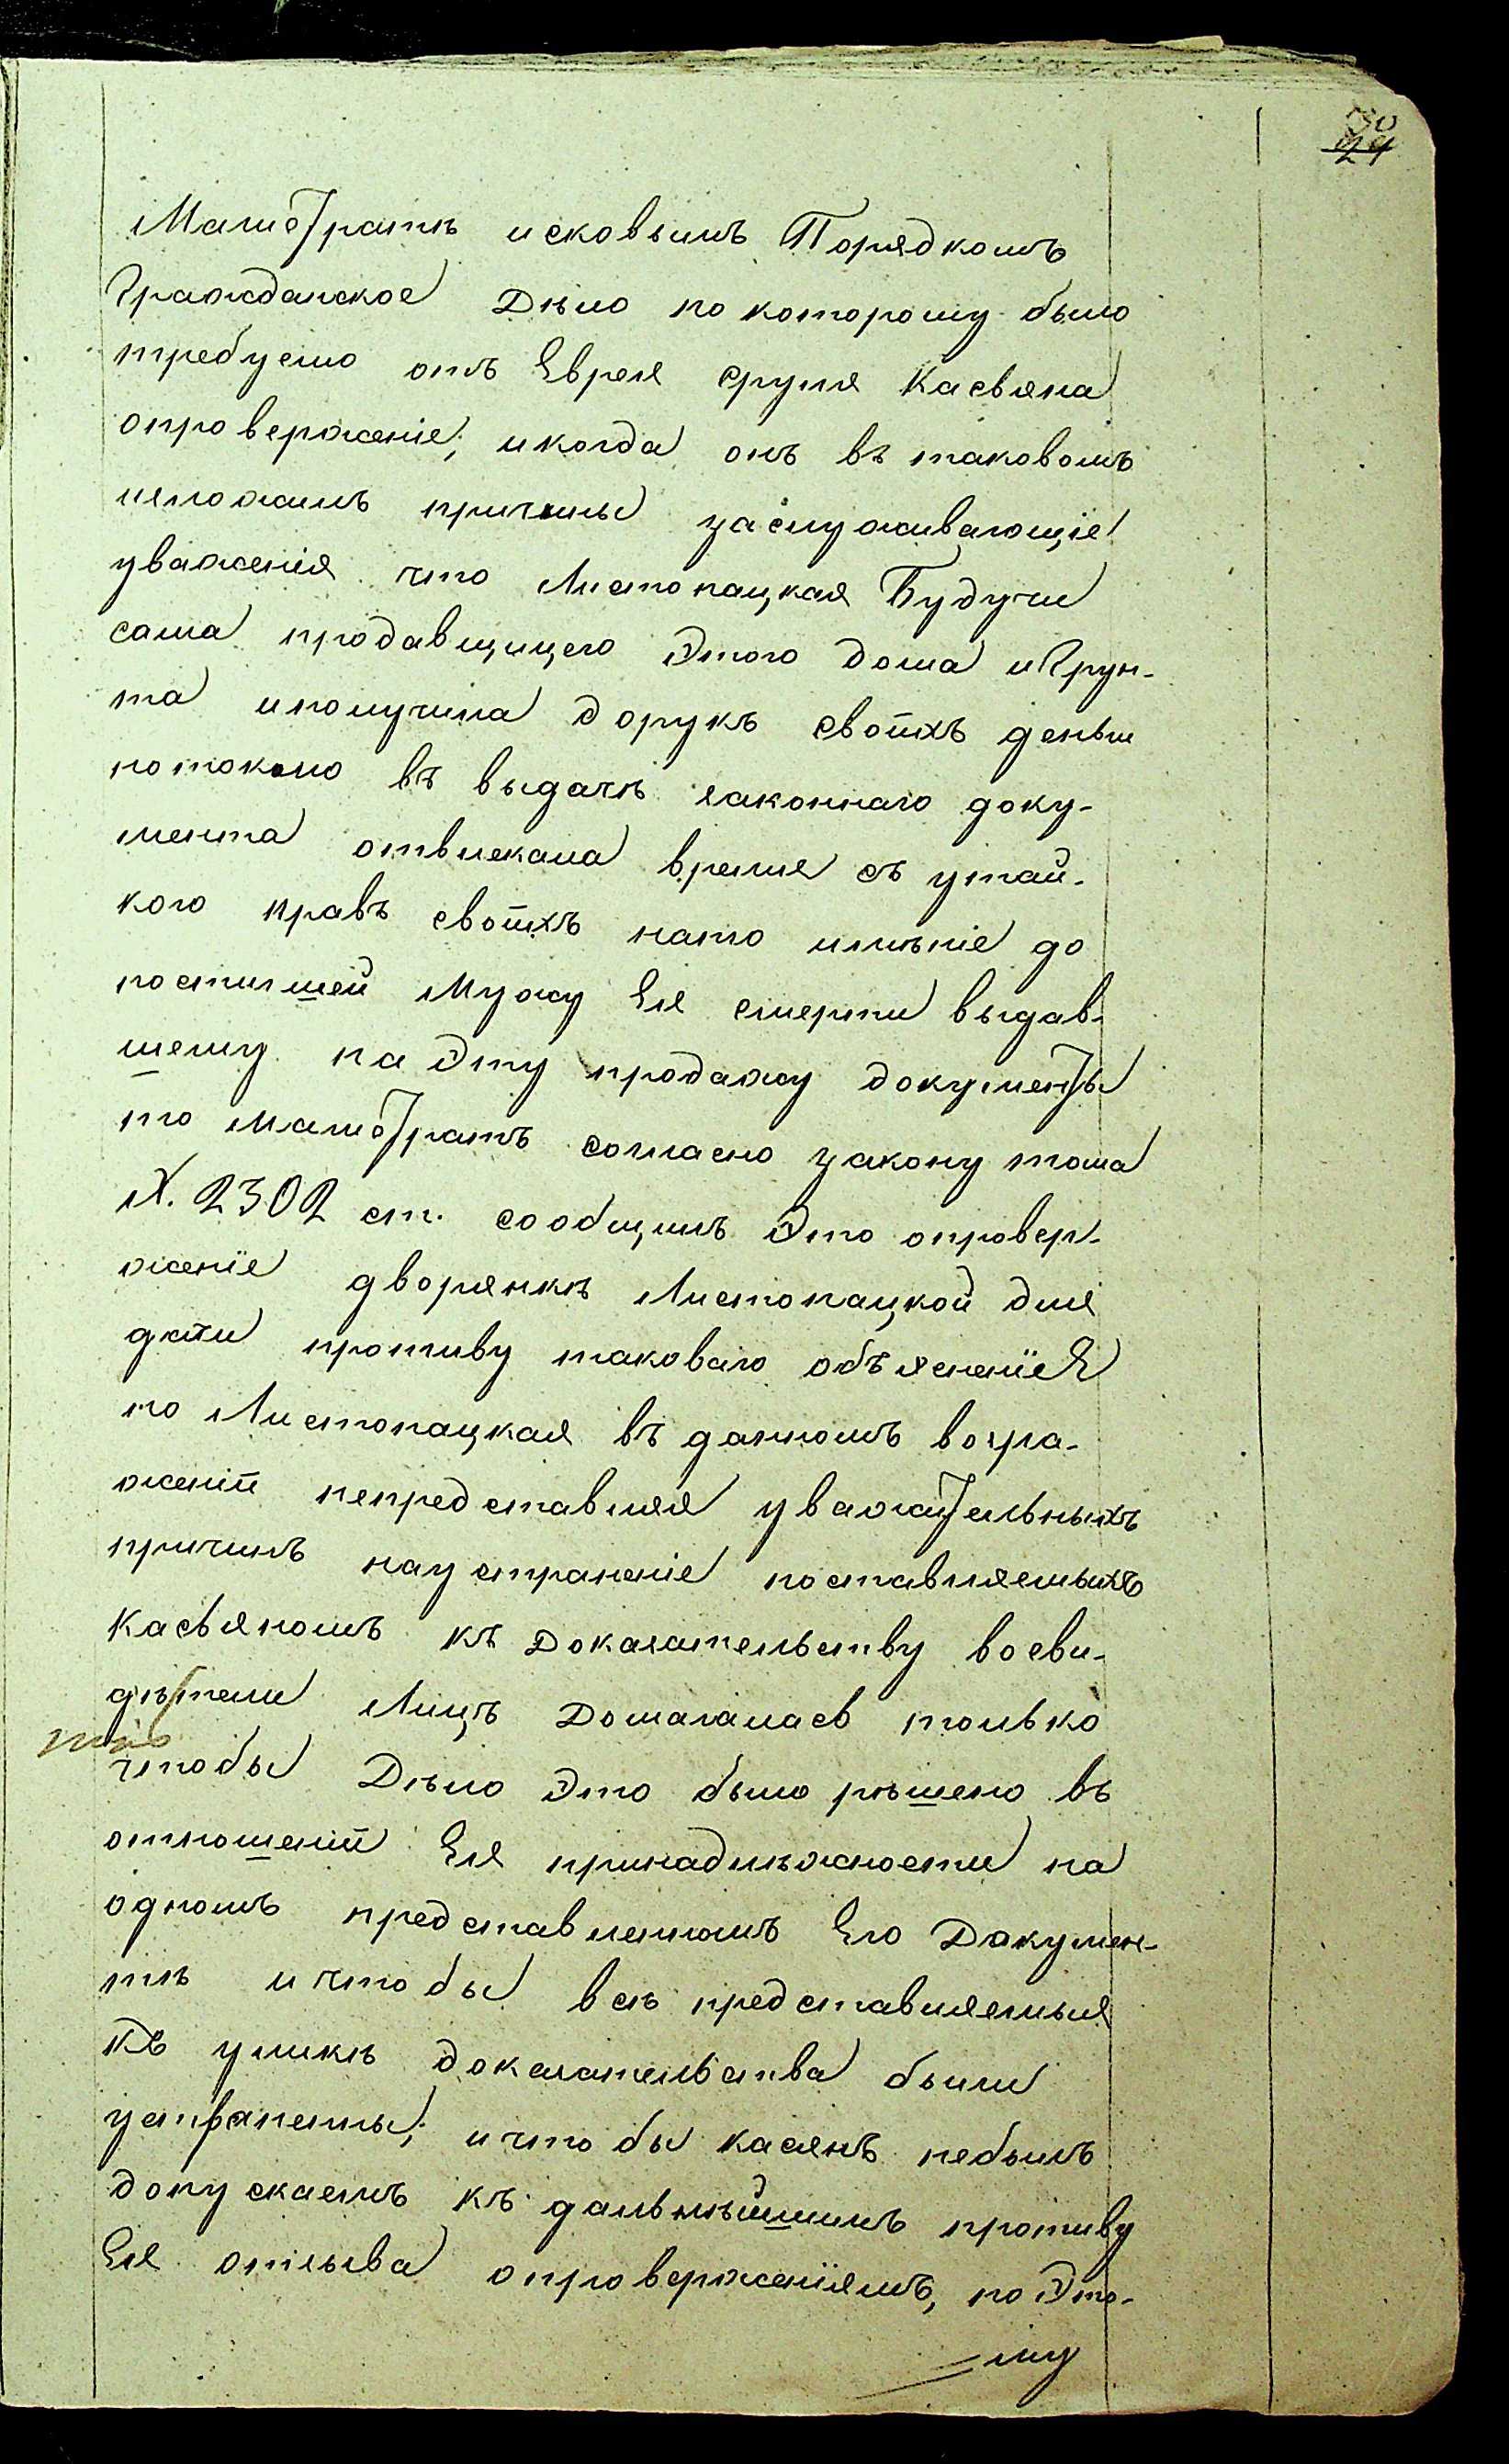 30
24
Магистратъ исковымъ Порядкомъ
Гражданское Дѣло по которому было
требуемо отъ Еврея Сруля Касвяна
опроверженіе; и когда онъ въ таковомъ
изложилъ причины заслуживающіе
уваженія что Листопацкая Будучи
сама продавщицею Этого дома и Грун-
та и получила до рукъ своихъ деньги
потокмо въ выдачѣ законнаго доку-
мента отвлекала время съ утай-
кою правъ своихъ на то имѣніе до
постигшей Мужу Ея смерти выдав-
шему на Эту продажу документы
то Магистратъ согласно закону тома
Х. 2302 ст. сообщилъ Это опровер-
женіе дворянкѣ Листопацкой для
дачи противу таковаго объясненіея
но Листопацкая въ данномъ возра-
женіи непредставляя уважительныхъ
причинъ на устраненіе поставляемыхъ
Касвяномъ къ Доказательству во сви-
дѣтели Лицъ Домагалась только
чтобы Дѣло Это было рѣшено въ
отношеніи Ея принадлѣжности на
одномъ представленномъ Ею Докумен-
тѣ и чтобы всѣ представляемыя
къ уликѣ доказательства были
устранены; и чтобы касянъ небылъ
допускаемъ къ дальнѣйшимъ противу
Ея отзыва опроверженіямъ, по Это-
му